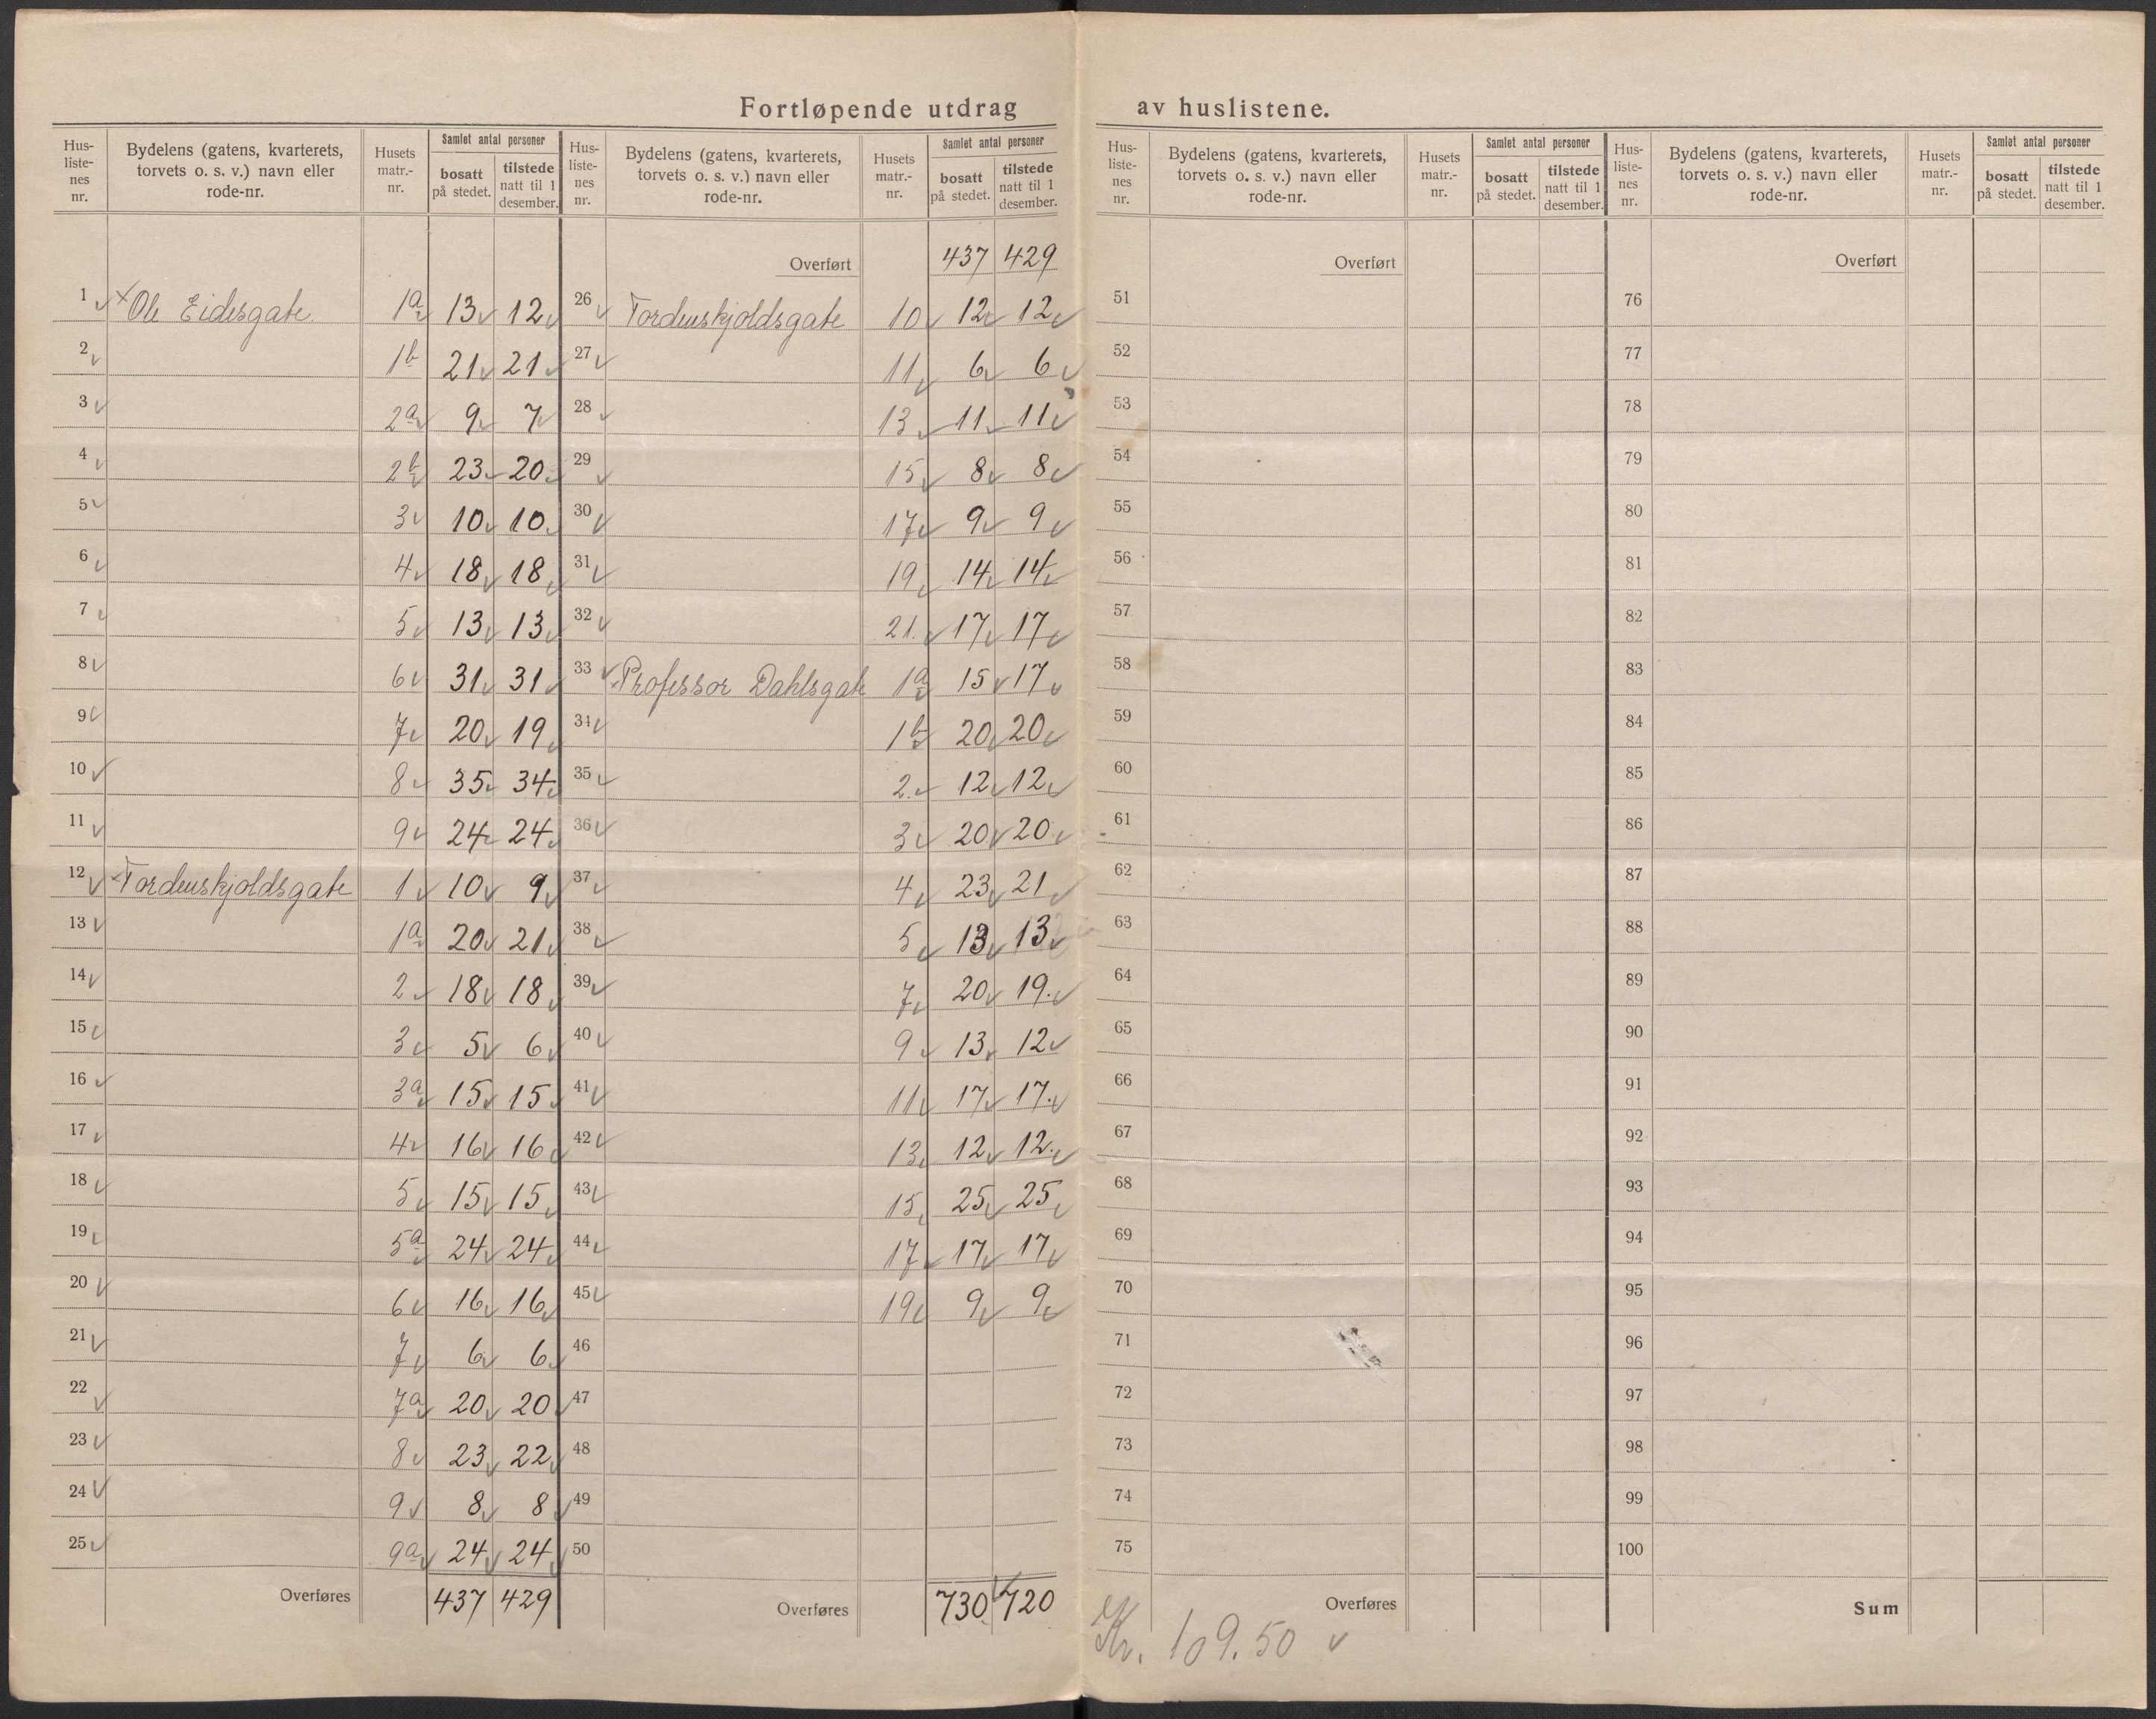 Fortløpende utdrag av huslistene.
Hus-liste-nes nr. Bydelens (gatens, kvarterets, torvets o. s. v.) navn eller rode-nr. Husets matr.-nr. Samlet antal personer bosatt på stedet. tilstede natt til 1 desember.
1 Ole Eidesgate 1a 13 12
2 1b 21 21
3 2a 9 7
4 2b 23 20
5 3 10 10
6 4 18 18
7 5 13 13
8 6 31 31
9 7 20 19
10 8 35 34
11 9 24 24
12 Tordenskjoldsgate 1 10 9
13 1a 20 21
14 2 18 18
15 3 5 6
16 3a 15 15
17 4 16 16
18 5 15 15
19 5a 24 24
20 6 16 16
21 7 6 6
22 7a 20 20
23 8 23 22
24 9 8 8
25 9a 24 24
Overføres 437 429
Hus-liste-nes nr. Bydelens (gatens, kvarterets, torvets o. s. v.) navn eller rode-nr. Husets matr.-nr. Samlet antal personer bosatt på stedet. tilstede natt til 1 desember.
Overført 437 429
26 Tordenskjoldsgate 10 12 12
27 11 6 6
28 13 11 11
29 15 8 8
30 17 9 9
31 19 14 14
32 21. 17 17
33 Professor Dahlsgate 1a 15 17
34 1b 20 20
35 2. 12 12
36 3 20 20
37 4 23 21
38 5 13 13
39 7 20 19.
40 9 13 12
41 11 17 17.
42 13 12 12.
43 15 25 25
44 17 17 17
45 19 9 9
46
47
48
49
50
Overføres 730 720
Hus-liste-nes nr. Bydelens (gatens, kvarterets, torvets o. s. v.) navn eller rode-nr. Husets matr.-nr. Samlet antal personer bosatt på stedet. tilstede natt til 1 desember.
Overført
51
52
53
54
55
56
57
58
59
60
61
62
63
64
65
66
67
68
69
70
71
72
73
74
75
Overføres
Kr. 109.50
Hus-liste-nes nr. Bydelens (gatens, kvarterets, torvets o. s. v.) navn eller rode-nr. Husets matr.-nr. Samlet antal personer bosatt på stedet. tilstede natt til 1 desember.
Overført
76
77
78
79
80
81
82
83
84
85
86
87
88
89
90
91
92
93
94
95
96
97
98
99
100
Sum